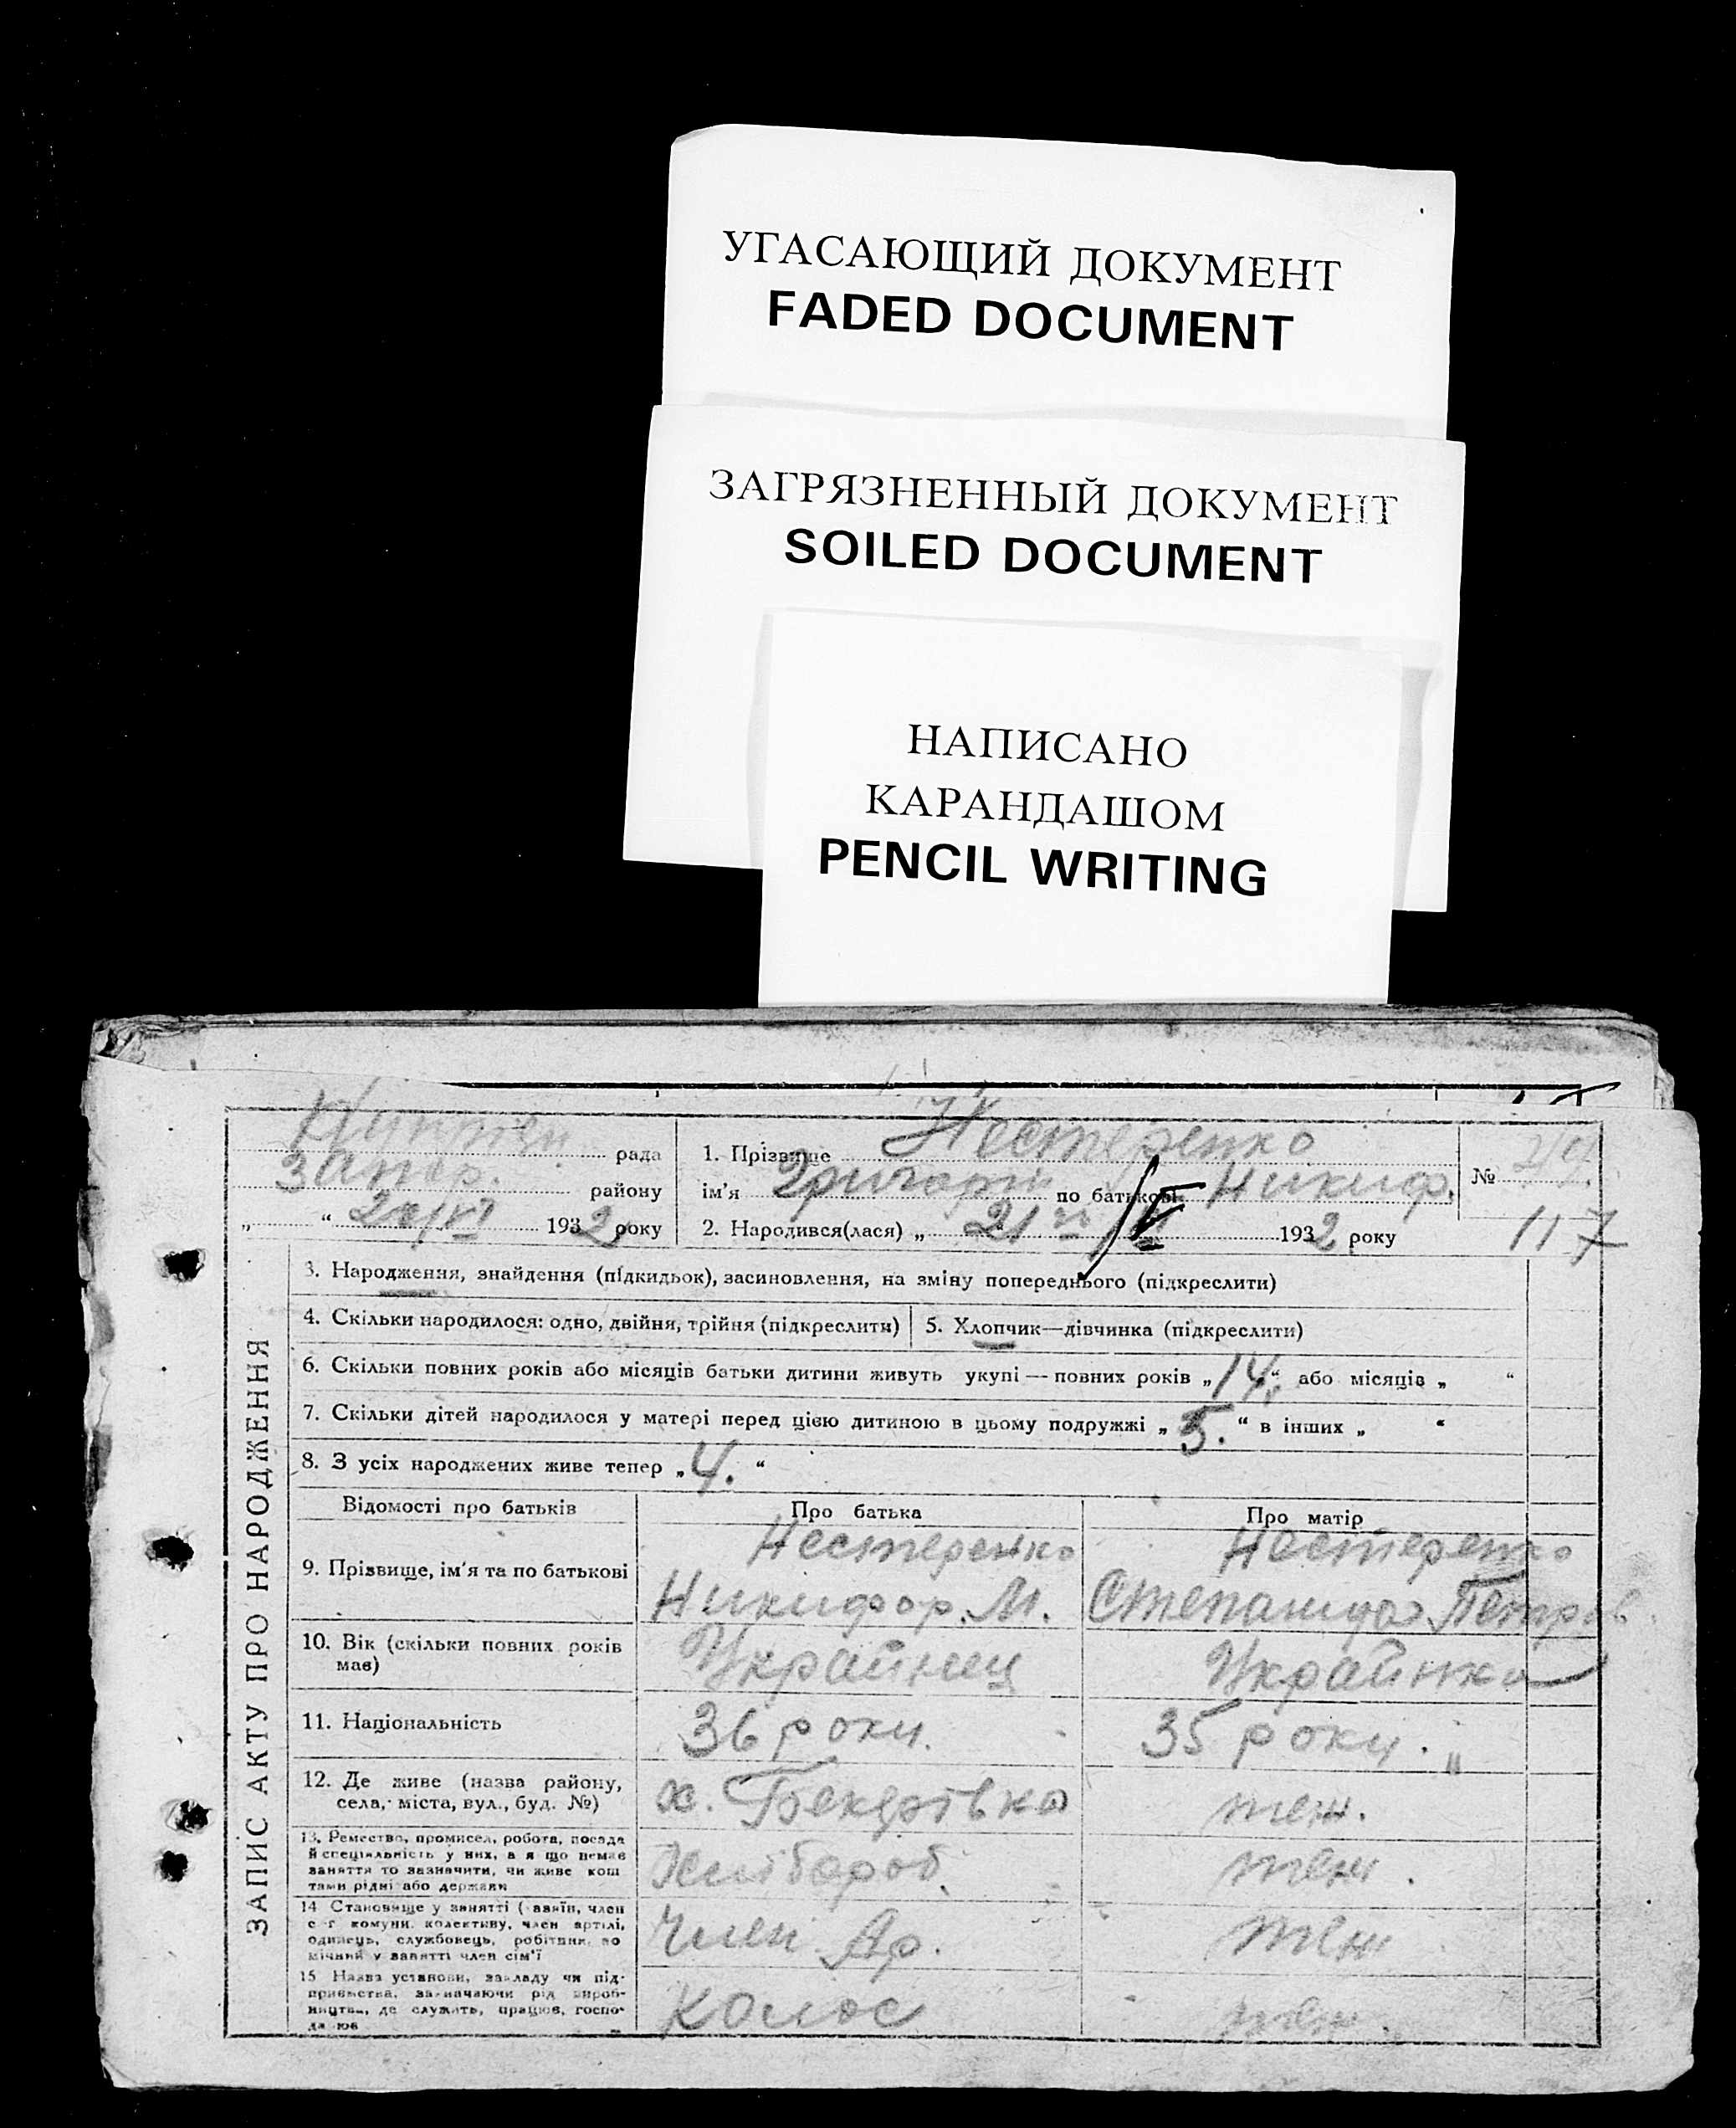 УГАСАЮЩИЙ ДОКУМЕНТ
FADED DOCUMENT
ЗАГРЯЗНЕННЫЙ ДОКУМЕНТ
SOILED DOCUMENT
НАПИСАНО
КАРАНДАШОМ
PENCIL WRITING
ЗАПИС АКТУ ПРО НАРОДЖЕННЯ
рада
Запор. району
„ “ 1932 року
1. Прізвище Нестеренко
ім'я Григорій по батькові Никиф.
2. Народився(лася) „ 21 1932 року
№
117
3. Народження, знайдення (підкидьок), засиновлення, на зміну попереднього (підкреслити)
4. Скільки народилося: одно, двійня, трійня (підкреслити)
5. Хлопчик—дівчинка (підкреслити)
6. Скільки повних років або місяців батьки дитини живуть укупі — повних років „14.“ або місяців „ “
7. Скільки дітей народилося у матері перед цією дитиною в цьому подружжі „5.“ в інших „ “
8. З усіх народжених живе тепер „4.“
Відомості про батьків
Про батька
Про матір
9. Прізвище, ім'я та по батькові
Нестеренко
Никифор. М.
Нестеренко
Степанида Петров
10. Вік (скільки повних років
має)
Украйнец
Украйнка
11. Національність
36 роки.
35 роки.
12. Де живе (назва району,
села, міста, вул., буд. №)
х. Бекерівка
теж.
13. Ремество, промисел, робота, посада
й спеціяльність у них, а якщо немає
заняття то зазначити, чи живе кош
тами рідні або держави
Хлібороб.
теж.
14 Становище у занятті (хазяїн, член
с-г комуни, колективу, член артілі,
одинець, службовець, робітник, по
мічний у занятті член сім'ї
Член Ар.
теж
15 Назва установи, закладу чи під-
приємства, зазначаючи рід вироб-
ництва, де служить, працює, госпо-
дарює
Колос
теж.